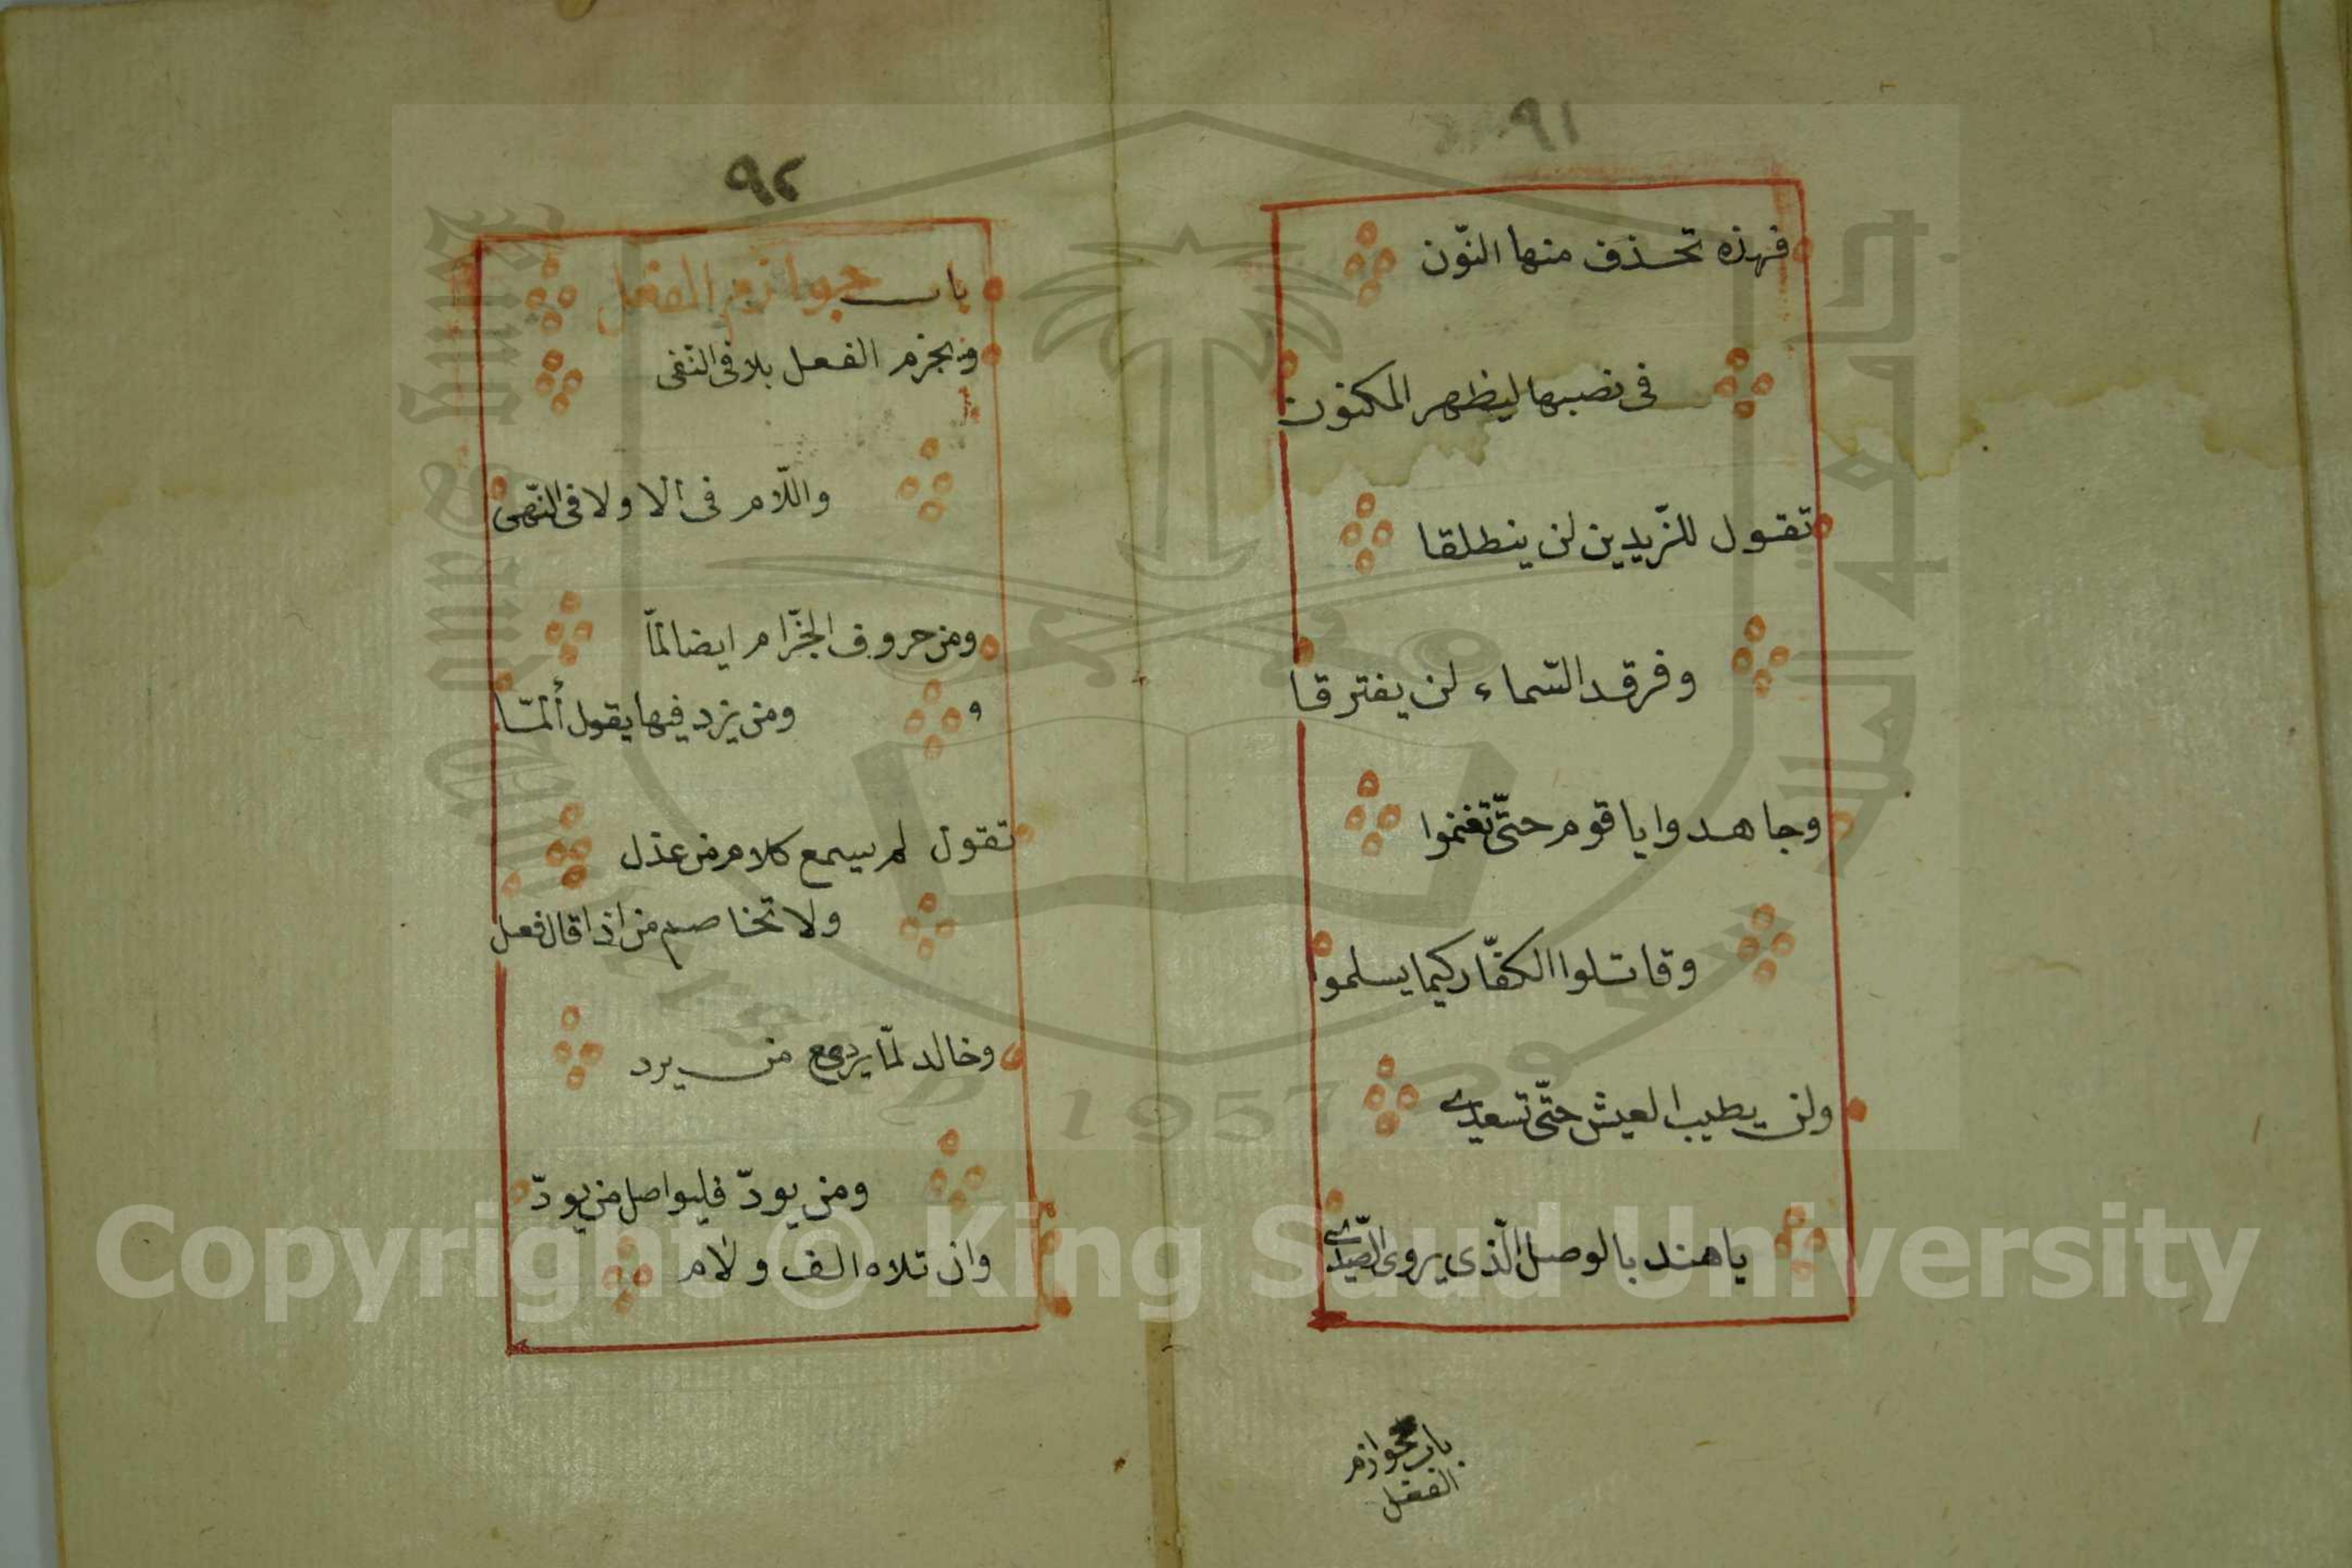 ٩١
فهذه تحذف منها النّون
فى نصبها ليظهر المكنون
تقول للزّيدين لن ينطلقا
وفرقد السّماء لن يفترقا
وجاهدوا يا قوم حتّى تغنموا
وقاتلوا الكفّار كيما يسلموا
ولن يطيب العيش حتّى تسعدى
يا هند بالوصل الّذى يروى الصّدى
باب جوازم
الفعل
٩٢
باب جوازم الفعل
ويجزم الفعل بلا فى النفى
واللّام فى الا ولا فى النّهى
ومن حروف الجزّام ايضا لمّا
و
ومن يزد فيها يقول ألمّا
تقول لم يسمع كلام من عذل
ولا تخاصم من اذا قال فعل
وخالد لمّا يرد مع من يرد
ومن يودّ فليواصل من يودّ
وان تلاه الف ولام
Copyright © King Saud University
1957